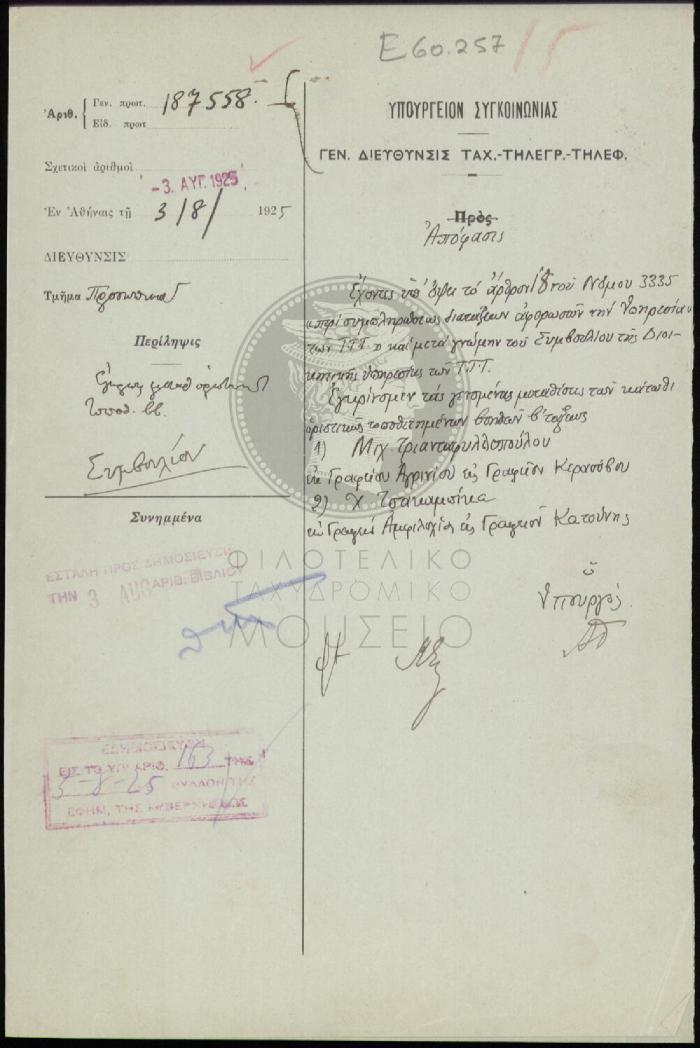 Ε60.257
15
Ἀριθ.
Γεν. πρωτ. 187558.
Εἰδ. πρωτ
Σχετικοὶ ἀριθμοὶ
- 3. ΑΥΓ. 1925
Ἐν Ἀθήναις τῇ 3/8/ 1925
ΔΙΕΥΘΥΝΣΙΣ
Τμῆμα
Περίληψις
Συμβούλιον
Συνημμένα
ΕΣΤΑΛΗ ΠΡΟΣ ΔΗΜΟΣΙΕΥΣΙΝ
ΤΗΝ 3 AUG ΑΡΙΘ. ΒΙΒΛΙΟΥ
ΕΔΗΜΟΣΙΕΥΘΗ
ΕΙΣ ΤΟ ΥΠ' ΑΡΙΘ. 163 ΤΗΣ
5-8-25 ΦΥΛΛΟΝ ΤΗΣ
ΕΦΗΜ. ΤΗΣ ΚΥΒΕΡΝΗΣΕΩΣ
ΥΠΟΥΡΓΕΙΟΝ ΣΥΓΚΟΙΝΩΝΙΑΣ
ΓΕΝ. ΔΙΕΥΘΥΝΣΙΣ ΤΑΧ.-ΤΗΛΕΓΡ.-ΤΗΛΕΦ.
Πρὸς
Ἀπόφασις
Ἔχοντες ὑπ' ὄψει τὸ ἄρθρον τοῦ Νόμου 3335
περὶ συμπληρώσεως διατάξεων ἀφορωσῶν τὴν Ὑπηρεσίαν
των Τ.Τ.Τ. καὶ μετὰ γνώμην τοῦ Συμβουλίου τῆς Διοι-
κητικῆς Ὑπηρεσίας τῶν Τ.Τ.Τ.
Ἐγκρίνομεν τὰς γενομένας μεταθέσεις τῶν κάτωθι
ὁριστικῶς τοποθετημένων βοηθῶν β' τάξεως
1) Μιχ. Τριανταφυλλοπούλου
ἐκ Γραφείου Ἀγρινίου εἰς Γραφεῖον Κερασόβου
2) Χ Τσακαμπίκα
ἐκ Γραφείου Ἀμφιλοχίας εἰς Γραφεῖον Κατούνης
Ὁ
Ὑπουργός
ΦΙΛΟΤΕΛΙΚΟ
ΤΑΧΥΔΡΟΜΙΚΟ
ΜΟΥΣΕΙΟ